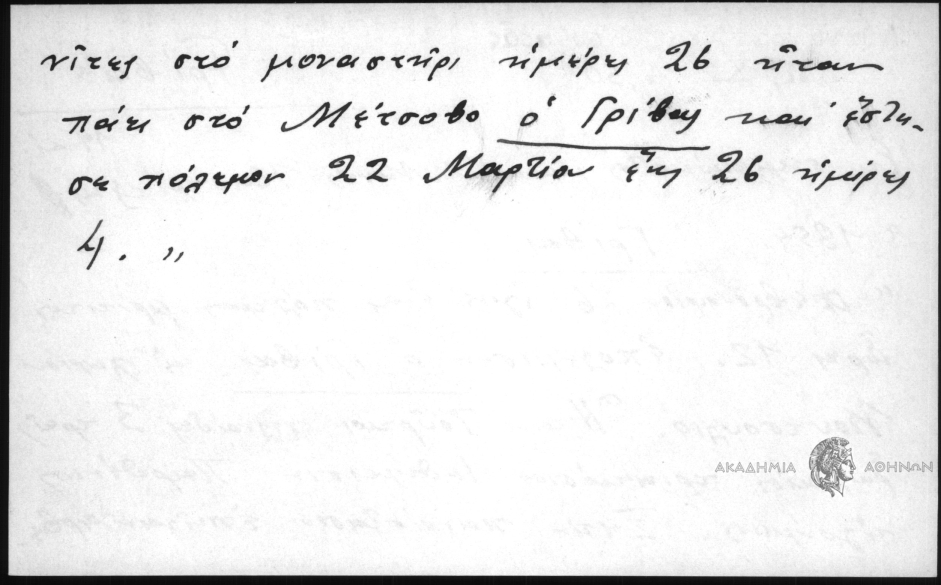 νῖτες στό μοναστῆρι ἡμέρες 26 ἦταν
πάει στό Μέτσοβο ὁ Γρίβας καί ἔστη-
σε πόλεμον 22 Μαρτίου ἕως 26 ἡμέρες
4. "
ΑΚΑΔΗΜΙΑ ΑΘΗΝΩΝ